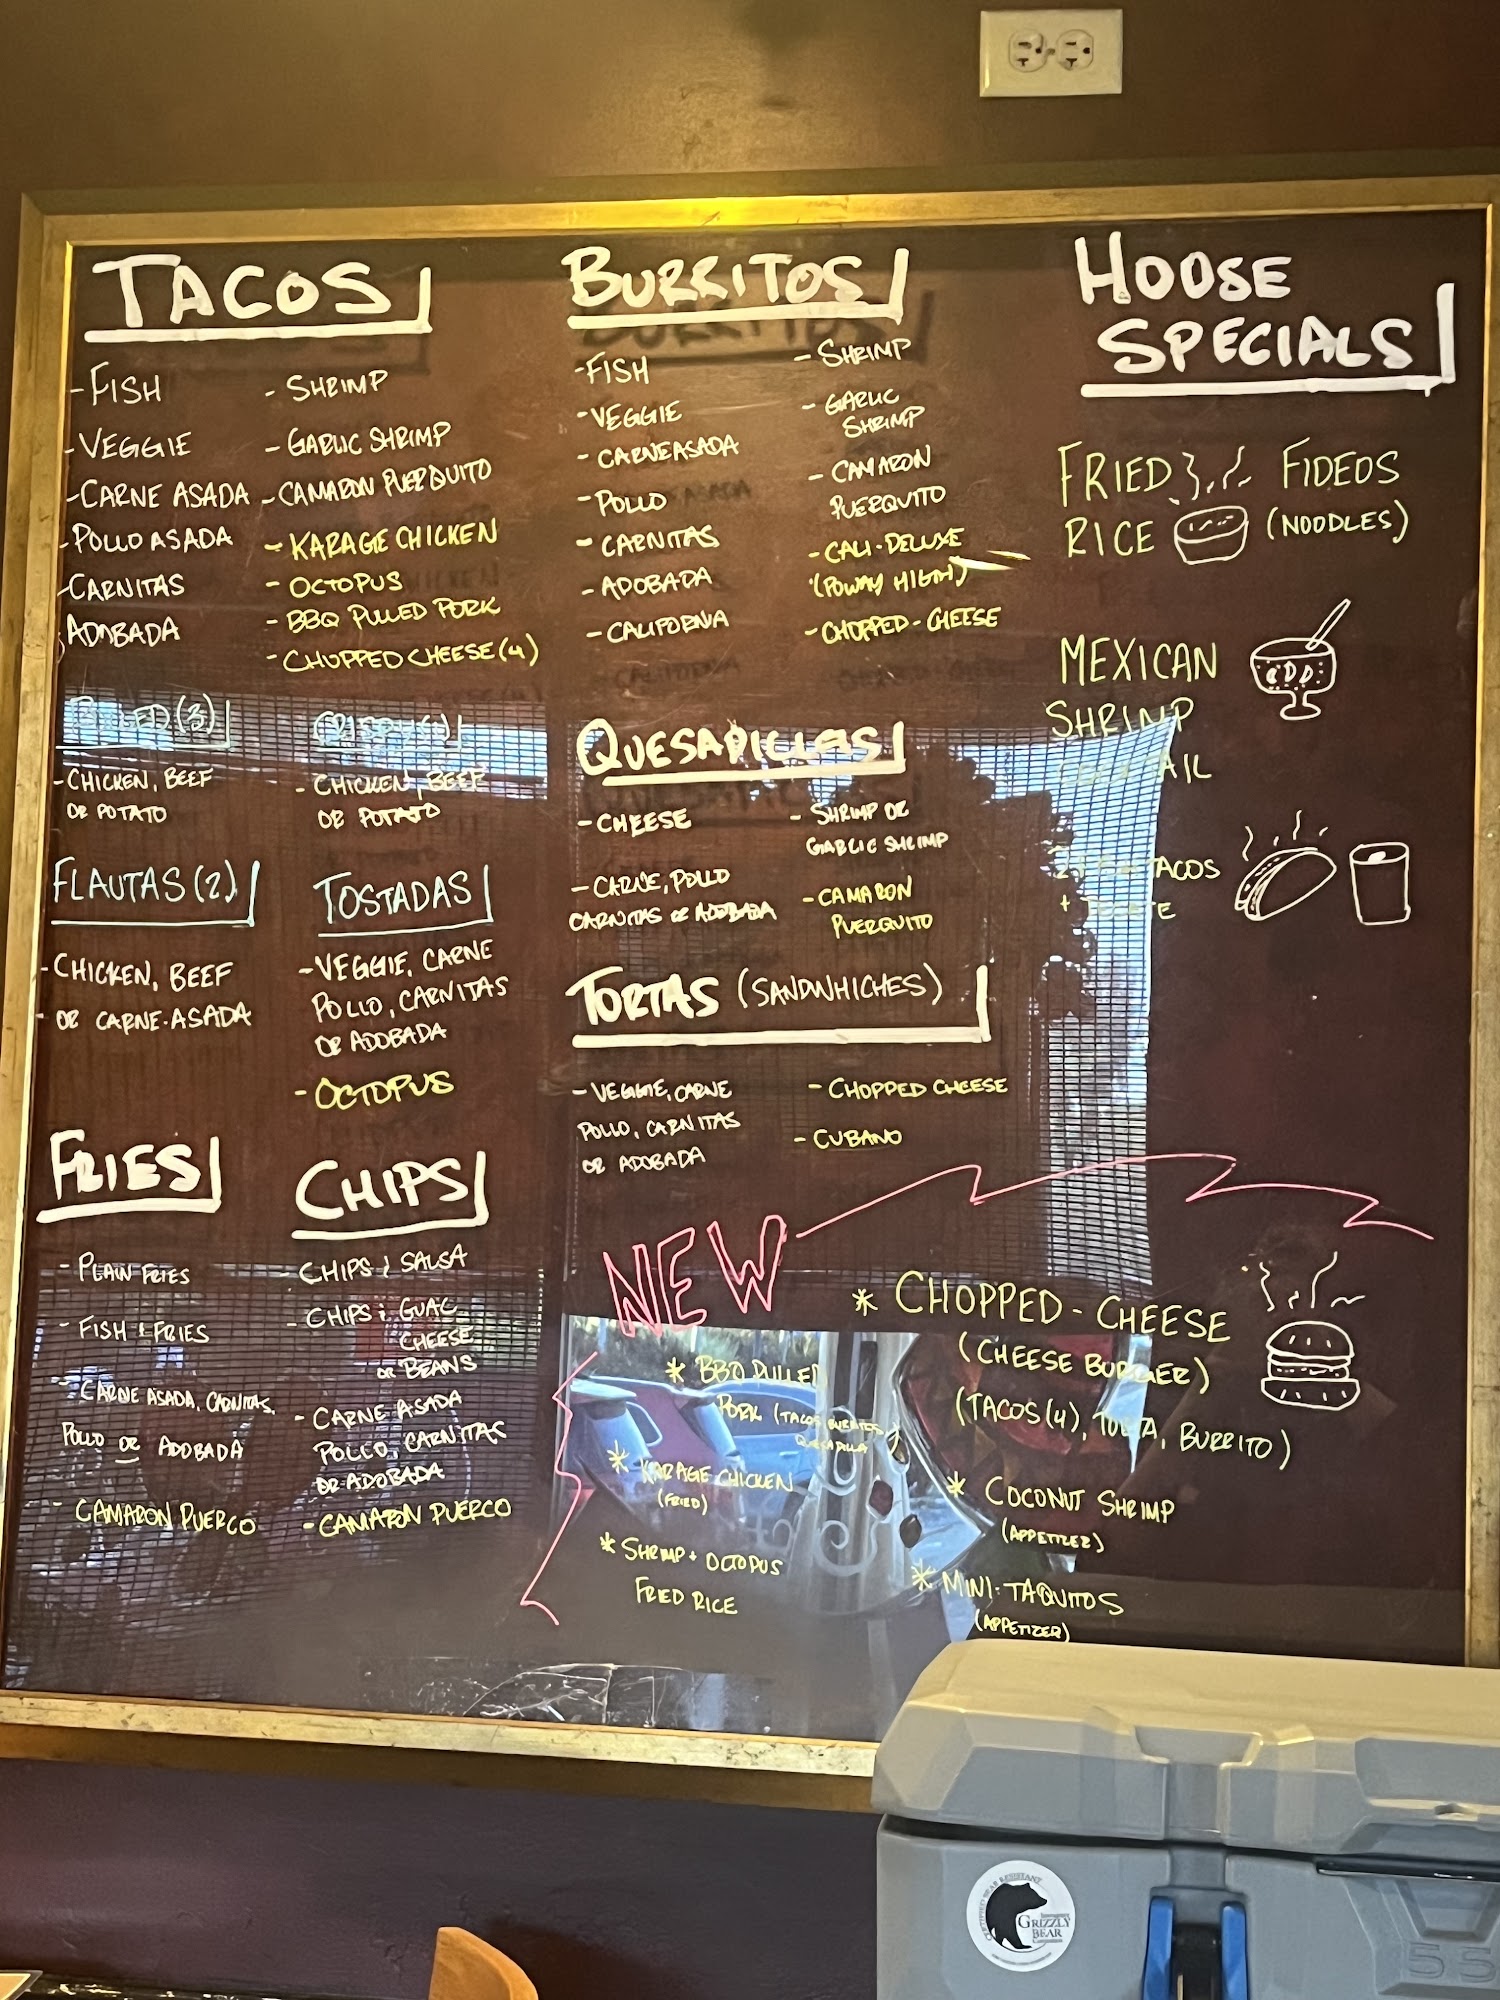 TACOS
- FISH
- VEGGIE
- CARNE ASADA
- POLLO ASADA
- CARNITAS
ADOBADA
- SHRIMP
- GARLIC SHRIMP
- CAMARON PUERQUITO
- KARAGE CHICKEN
- OCTOPUS
- BBQ PULLED PORK
- CHOPPED CHEESE (4)
(3)
- CHICKEN, BEEF
OR POTATO
CRISPY
- CHICKEN, BEEF
OR POTATO
FLAUTAS (2)
- CHICKEN, BEEF
- OR CARNE-ASADA
TOSTADAS
- VEGGIE, CARNE
POLLO, CARNITAS
OR ADOBADA
- OCTOPUS
FRIES
- PLAIN FRIES
- FISH & FRIES
- CARNE ASADA, CARNITAS,
POLLO OR ADOBADA
- CAMARON PUERCO
CHIPS
- CHIPS & SALSA
- CHIPS & GUAC
CHEESE
OR BEANS
- CARNE-ASADA
POLLO, CARNITAS
OR ADOBADA
- CAMARON PUERCO
BURRITOS
- FISH
- VEGGIE
- CARNE ASADA
- POLLO
- CARNITAS
- ADOBADA
- CALIFORNIA
- SHRIMP
- GARLIC
SHRIMP
- CAMARON
PUERQUITO
- CALI-DELUXE
(POWAY HIGH)
- CHOPPED-CHEESE
QUESADILLAS
- CHEESE
- CARNE, POLLO
CARNITAS OR ADOBADA
- SHRIMP OR
GARLIC SHRIMP
- CAMARON
PUERQUITO
TORTAS (SANDWHICHES)
- VEGGIE, CARNE
POLLO, CARNITAS
OR ADOBADA
- CHOPPED CHEESE
- CUBANO
HOUSE
SPECIALS
FRIED
RICE
FIDEOS
(NOODLES)
MEXICAN
SHRIMP
TACOS
NEW
* BBQ PULLED
PORK (TACOS, BURRITOS
QUESADILLA)
* KARAGE CHICKEN
(FRIED)
* SHRIMP + OCTOPUS
FRIED RICE
* CHOPPED-CHEESE
(CHEESE BURGER)
(TACOS (4), TORTA, BURRITO)
* COCONUT SHRIMP
(APPETIZER)
* MINI-TAQUITOS
(APPETIZER)
CERTIFIED BEAR RESISTANT
GRIZZLY
BEAR
55